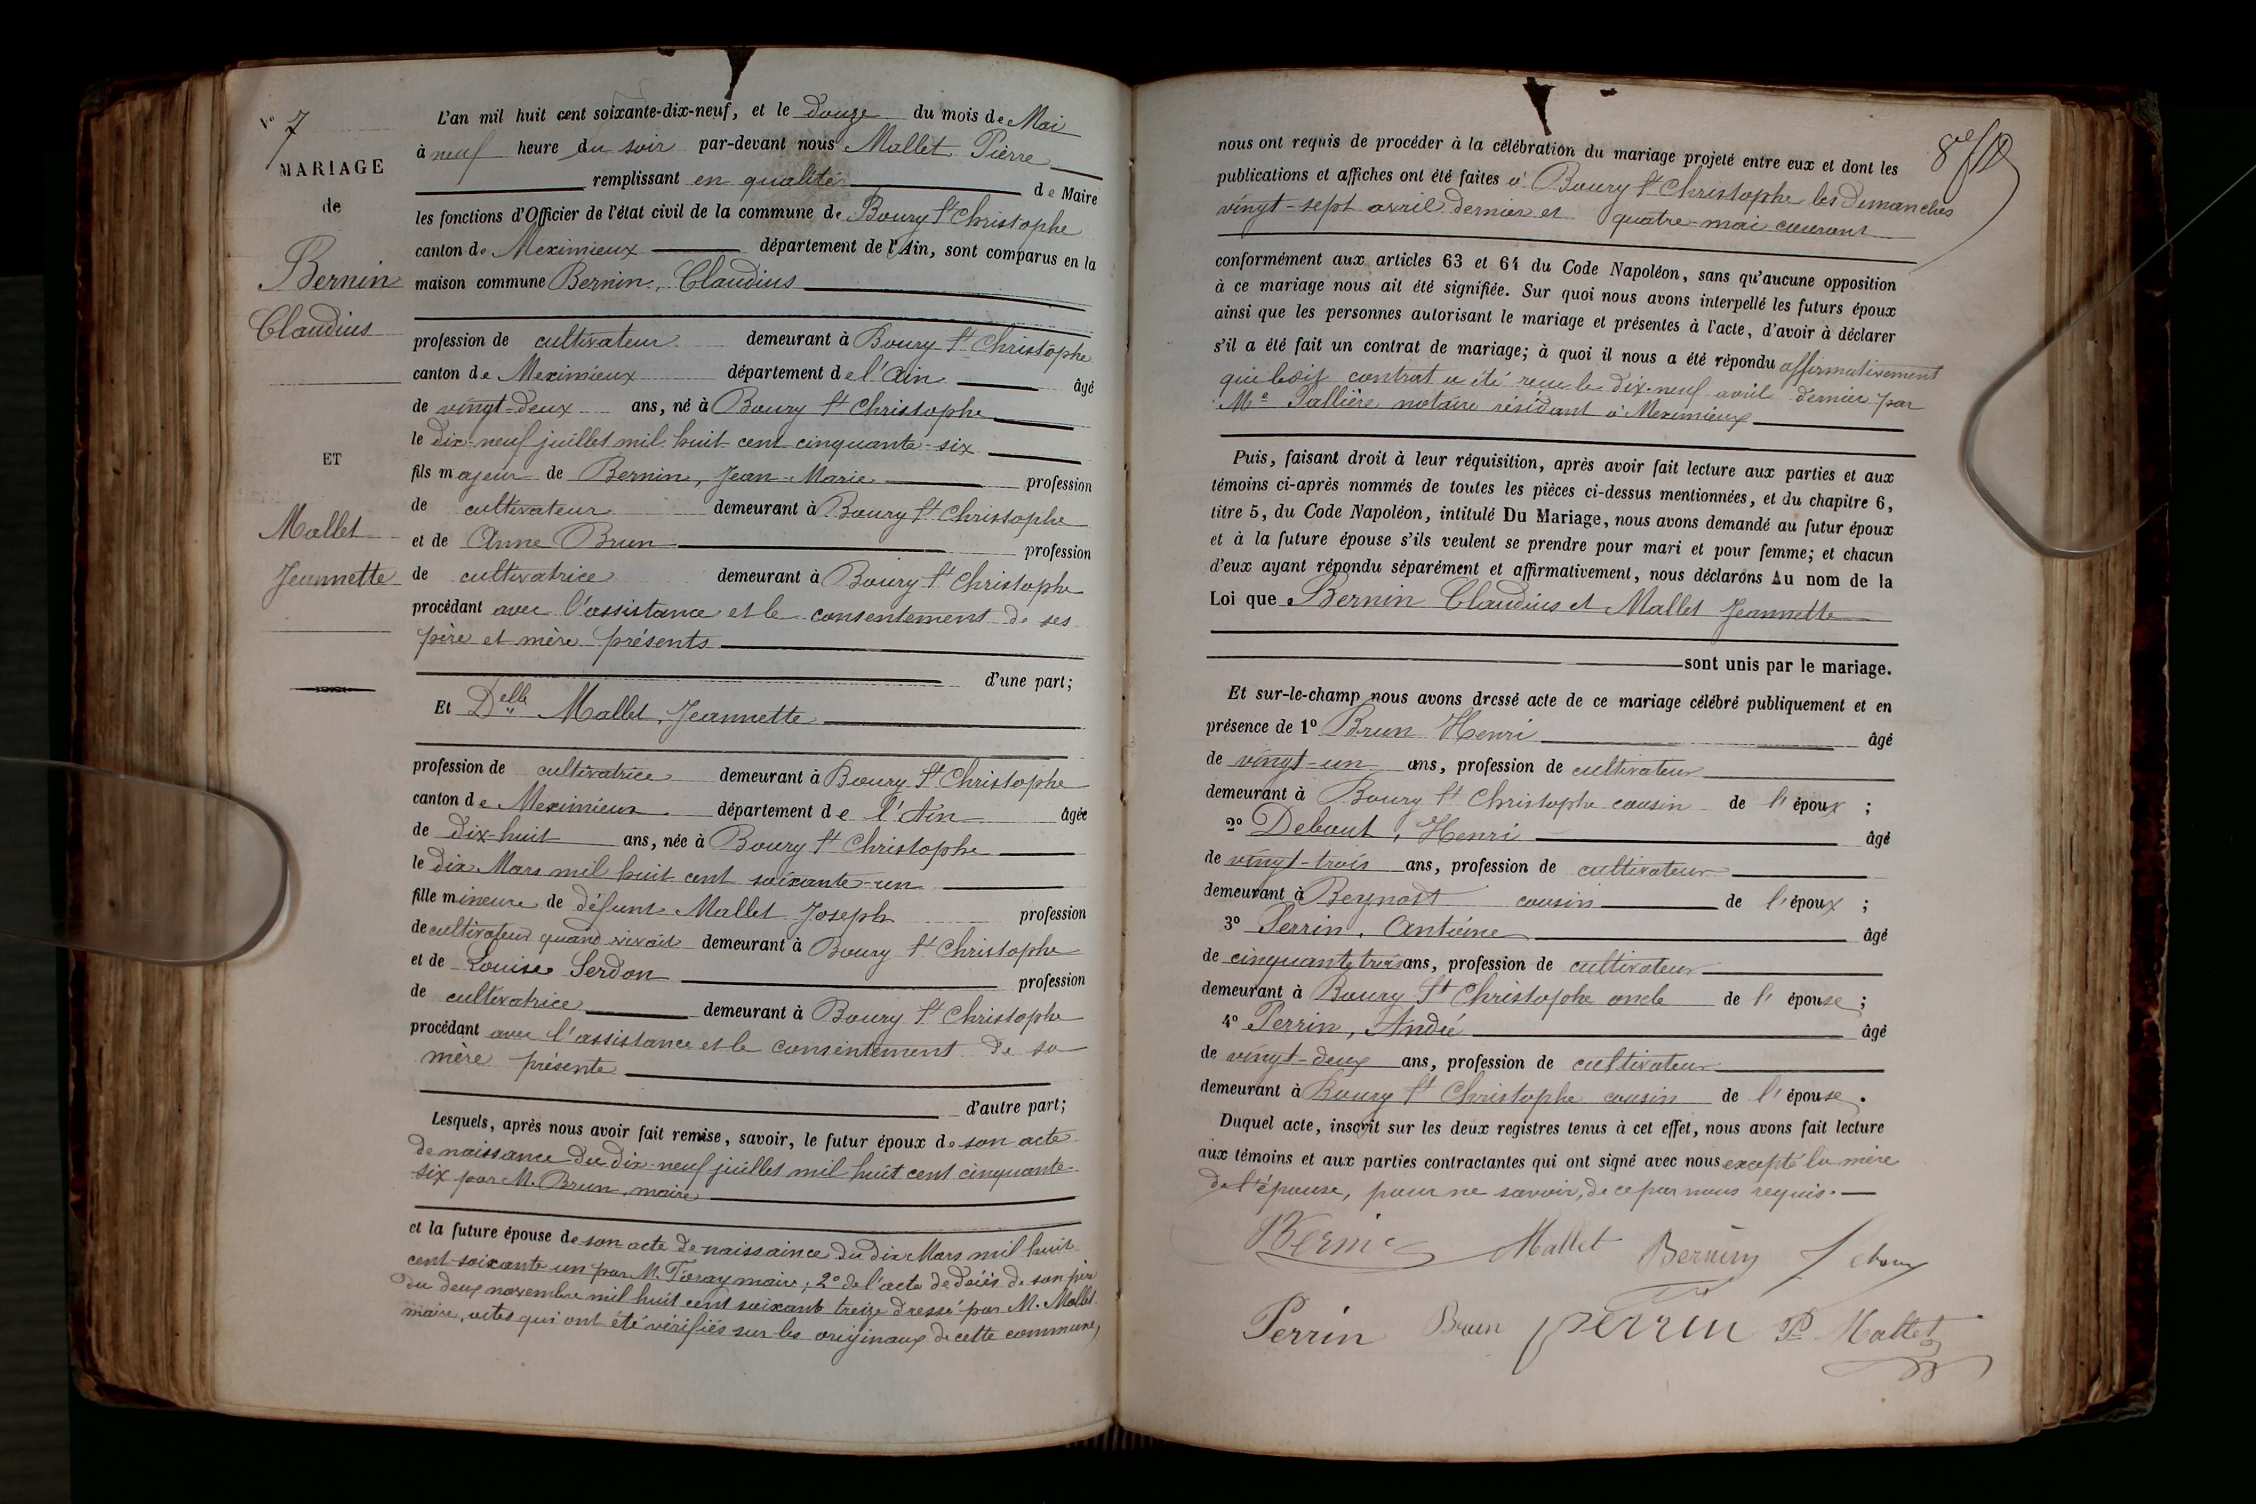 No 7
MARIAGE
de
Bernin
Claudius
ET
Mallet
Jeannette
L'an mil huit cent soixante-dix-neuf, et le douze du mois de Mai
à neuf heure du soir par-devant nous Mallet Pierre
remplissant en qualité de Maire
les fonctions d'Officier de l'état civil de la commune de Bourg St Christophe
canton de Meximieux département de l'Ain, sont comparus en la
maison commune Bernin, Claudius
profession de cultivateur demeurant à Bourg St Christophe
canton de Meximieux département de l'Ain âgé
de vingt-deux ans, né à Bourg St Christophe
le dix-neuf juillet mil huit cent cinquante-six
fils majeur de Bernin, Jean-Marie profession
de cultivateur demeurant à Bourg St Christophe
et de Anne Brun profession
de cultivatrice demeurant à Bourg St Christophe
procédant avec l'assistance et le consentement de ses
père et mère présents
d'une part;
Et Delle Mallet, Jeannette
profession de cultivatrice demeurant à Bourg St Christophe
canton de Meximieux département de l'Ain âgée
de dix-huit ans, née à Bourg St Christophe
le dix Mars mil huit cent soixante-un
fille mineure de défunt Mallet Joseph profession
de cultivateur quand vivait demeurant à Bourg St Christophe
et de Louise Serdon profession
de cultivatrice demeurant à Bourg St Christophe
procédant avec l'assistance et le consentement de sa
mère présente
d'autre part;
Lesquels, après nous avoir fait remise, savoir, le futur époux de son acte
de naissance du dix-neuf juillet mil huit cent cinquante-
six par M. Brun, maire
et la future épouse de son acte de naissaince du dix Mars mil huit
cent soixante un par M. maire; 2o de l'acte de décès de son père
du deux novembre mil huit cent soixante treize dressé par M. Mallet
maire, actes qui ont été vérifiés sur les originaux de cette commune,
8e f
nous ont requis de procéder à la célébration du mariage projeté entre eux et dont les
publications et affiches ont été faites à Bourg St Christophe les dimanches
vingt-sept avril dernier et quatre mai courant
conformément aux articles 63 et 64 du Code Napoléon, sans qu'aucune opposition
à ce mariage nous ait été signifiée. Sur quoi nous avons interpellé les futurs époux
ainsi que les personnes autorisant le mariage et présentes à l'acte, d'avoir à déclarer
s'il a été fait un contrat de mariage; à quoi il nous a été répondu affirmativement
que ledit contrat a été reçu le dix-neuf avril dernier par
Me Sallière notaire résidant à Meximieux
Puis, faisant droit à leur réquisition, après avoir fait lecture aux parties et aux
témoins ci-après nommés de toutes les pièces ci-dessus mentionnées, et du chapitre 6,
titre 5, du Code Napoléon, intitulé Du Mariage, nous avons demandé au futur époux
et à la future épouse s'ils veulent se prendre pour mari et pour femme; et chacun
d'eux ayant répondu séparément et affirmativement, nous déclarons Au nom de la
Loi que Bernin Claudius et Mallet Jeannette
sont unis par le mariage.
Et sur-le-champ nous avons dressé acte de ce mariage célébré publiquement et en
présence de 1o Brun Henri âgé
de vingt-un ans, profession de cultivateur
demeurant à Bourg St Christophe cousin de l'époux ;
2o Debout, Henri âgé
de vingt-trois ans, profession de cultivateur
demeurant à Beynost cousin de l'époux ;
3o Perrin, Antoine âgé
de cinquante trois ans, profession de cultivateur
demeurant à Bourg St Christophe oncle de l'épouse ;
4o Perrin, André âgé
de vingt-deux ans, profession de cultivateur
demeurant à Bourg St Christophe cousin de l'épouse.
Duquel acte, inscrit sur les deux registres tenus à cet effet, nous avons fait lecture
aux témoins et aux parties contractantes qui ont signé avec nous excepté la mère
de l'épouse, pour ne savoir, de ce par nous requis.
Bernin Mallet Bernin
Perrin Brun perrin P. Mallet